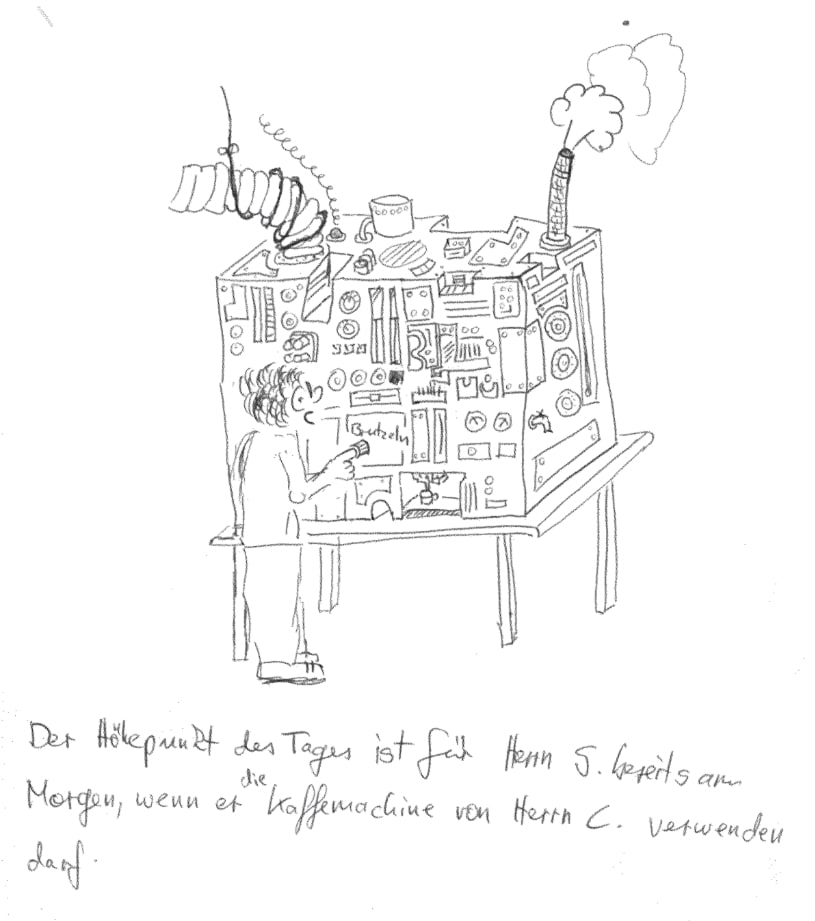 Brutzeln
Der Höhepunkt des Tages ist für Herrn S. bereits am
Morgen, wenn er die Kaffemachine von Herrn C. verwenden
darf.